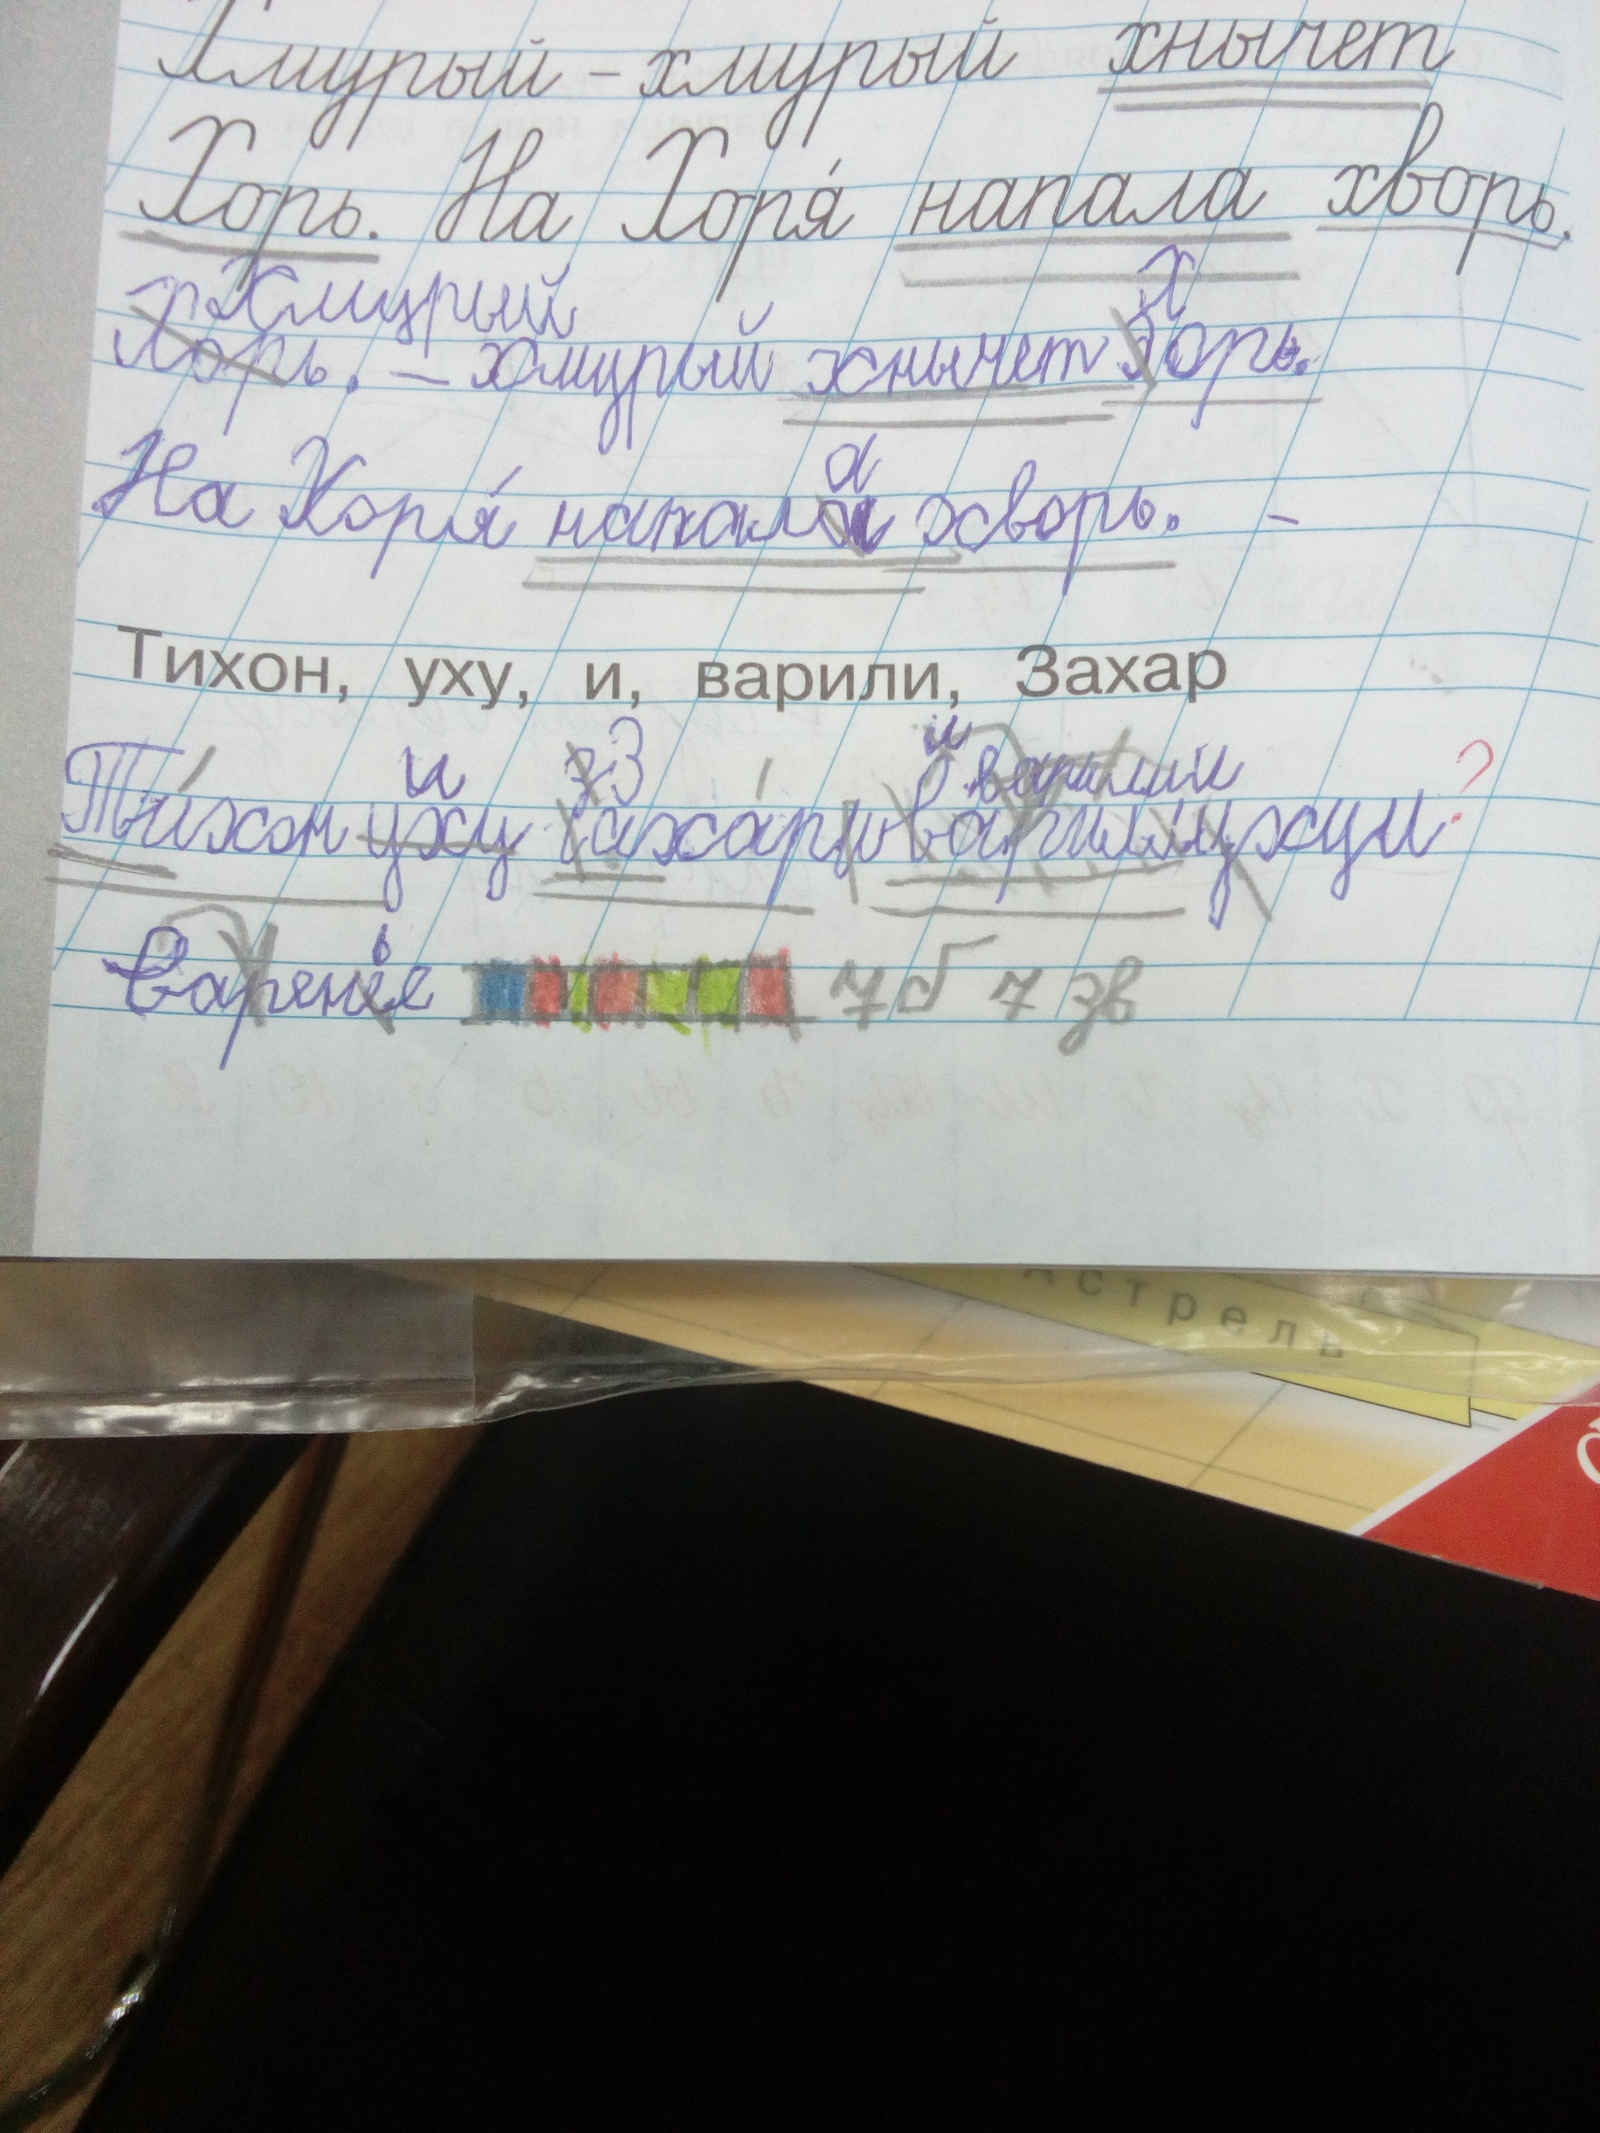 Хмурый - хмурый хнычет
Хорь. На Хоря́ напала хворь.
Хмурый
Хорь. - хмурый хнычет Хорь.
На Хоря́ напала хворь. -
Тихон, уху, и, варили, Захар
и З и варили
Тихон уху Захар и варили уху и ?
Варенье 7 б 7 зв
Астрель